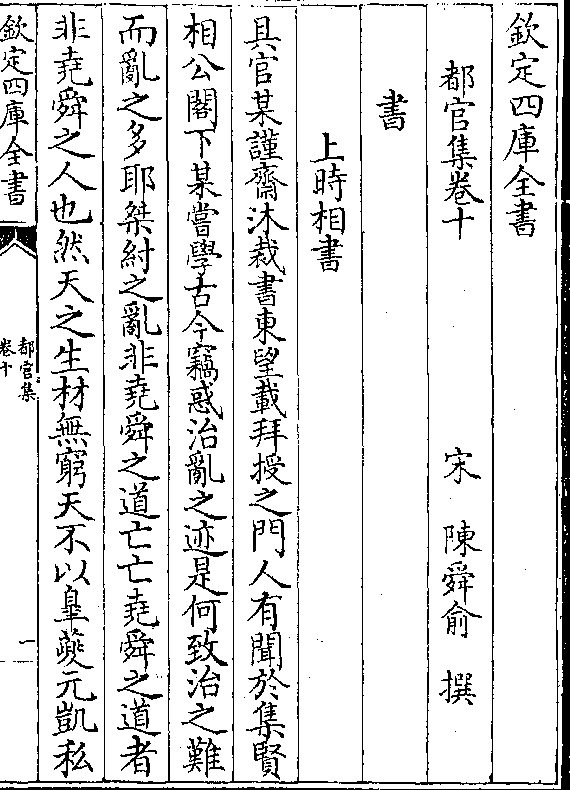 欽定四庫全書
都官集卷十 宋 陳舜俞 撰
書
上時相書
具官某謹齋沐裁書東望載拜授之門人有聞於集賢
相公閣下某嘗學古今竊惑治亂之迹是何致治之難
而亂之多耶桀紂之亂非堯舜之道亡亡堯舜之道者
非堯舜之人也然天之生材無窮天不以臯夔元凱私
欽定四庫全書
都官集
卷十
一